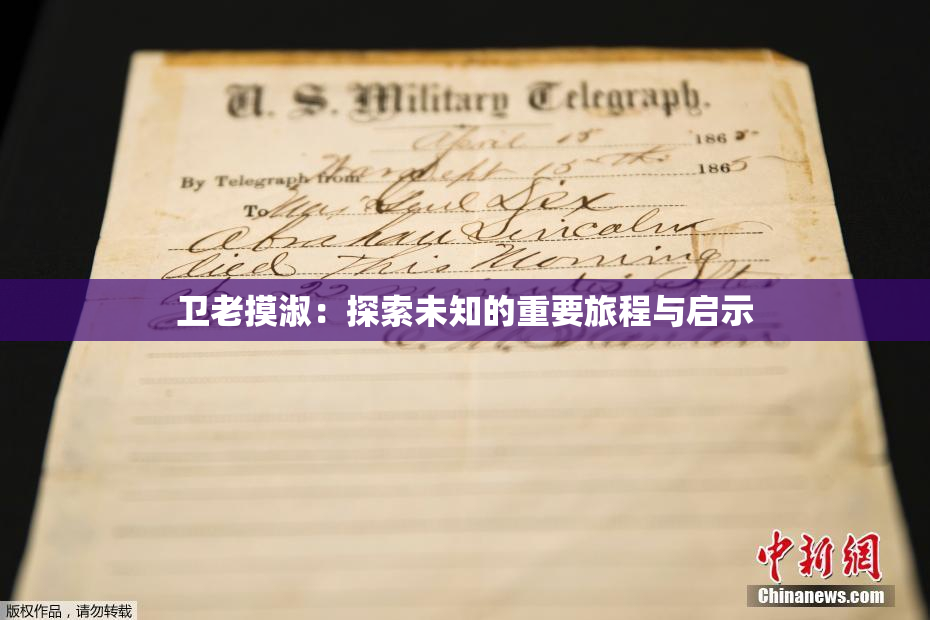 U. S. Military Telegraph.
April 15 1865
By Telegraph from War Dept 15th 1865
To Maj Genl Dix
Abraham Lincoln
died This Morning
22 minutes after
卫老摸淑：探索未知的重要旅程与启示
E. M. Stanton
中新網
Chinanews.com
版权作品，请勿转载